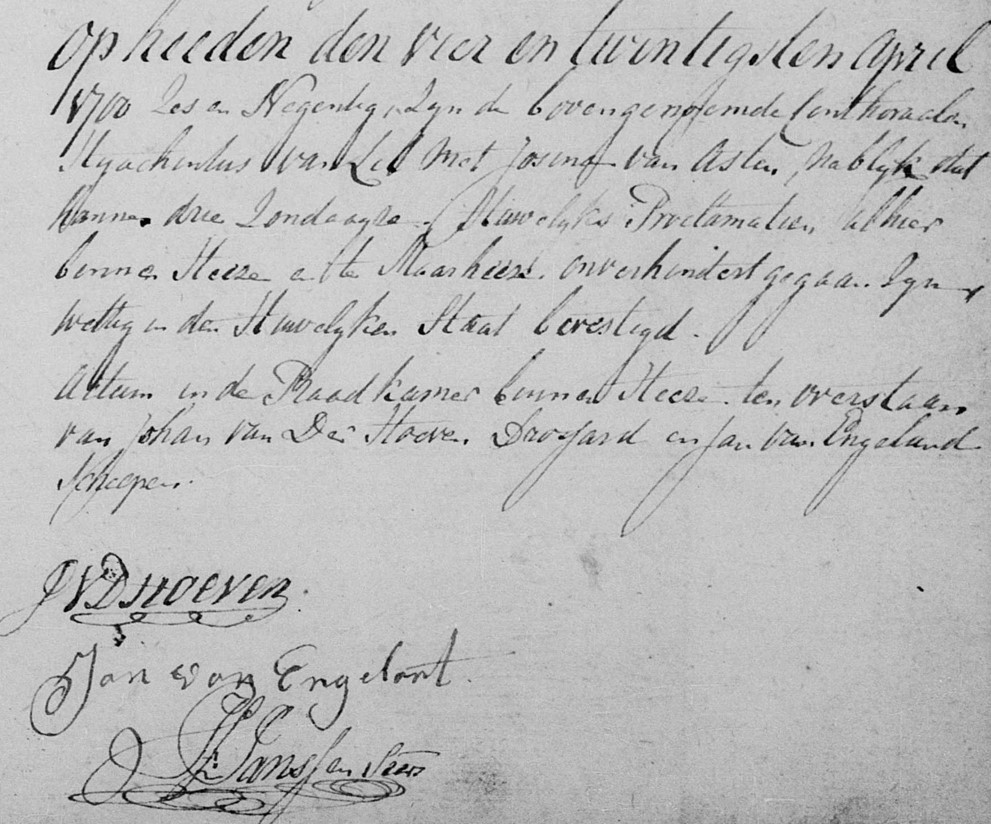 op heeden den vier en twintigsten april
1700 Zes en Negentig, Zyn de bovengenoemde
Hyachintus van Lil met Josina van Asten, na blyk dat
hunne drie Zondaagse Huwelyks Proclamatien alhier
binnen Heeze en te Maarheese onverhindert gegaan Zyn
wettig in den Huwelyken Staat bevestigd.
Actum in de Raadkamer binnen Heeze ten overstaan
van Johan van Der Hoeven Drossard en Jan van Engeland
Schepen.
JVDHoeven
Jan van Engelant